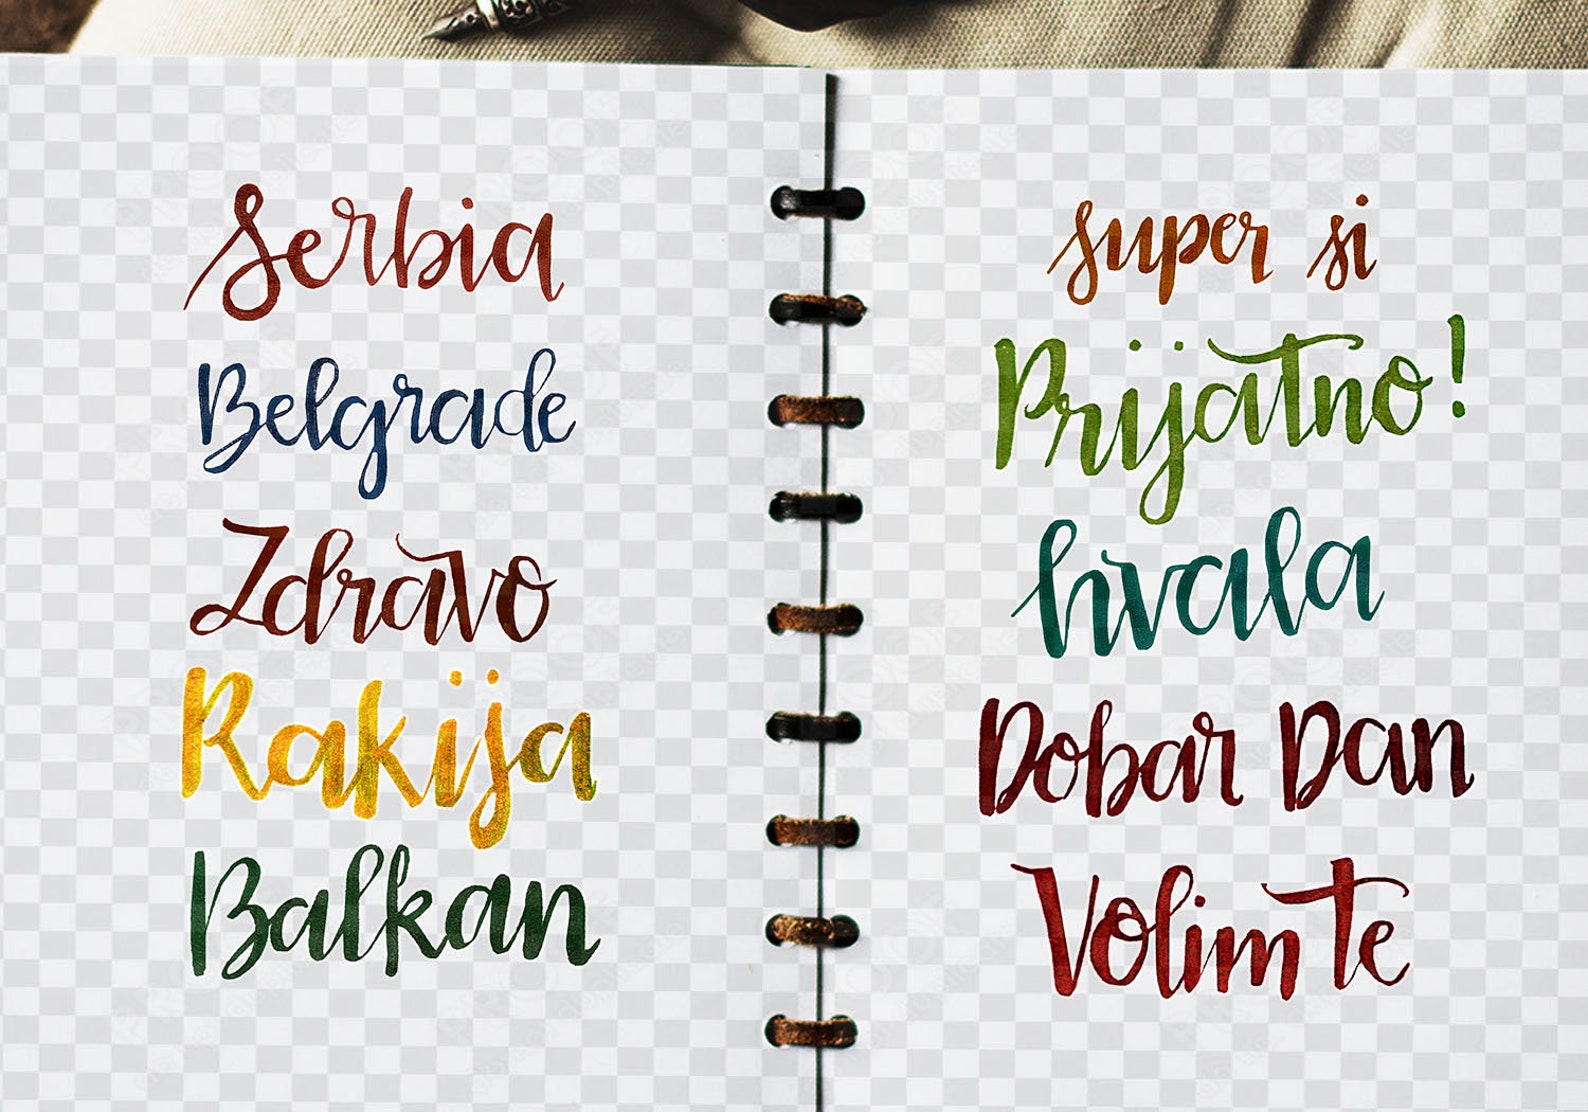 Serbia
Belgrade
Zdravo
Rakija
Balkan
super si
Prijatno!
hvala
Dobar Dan
Volim te